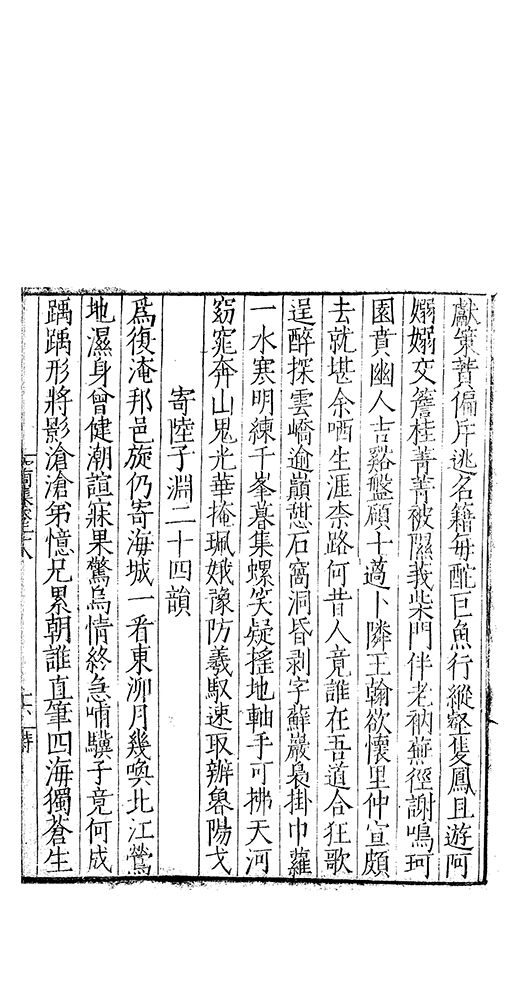 獻策贄偏斥逃名籍每酡巨魚行縱壑隻鳳且遊阿
嫋嫋交簷桂菁菁被隰莪柴門伴老衲蕪徑謝鳴珂
園賁幽人吉谿盤碩十薖卜隣王翰欲懷里仲宣頗
去就堪余哂生涯柰路何昔人竟誰在吾道合狂歌
逞醉探雲嶠逾巔憇石窩洞昏剥字蘚巖裊掛巾蘿
一水寒明練千峯暮集螺笑疑搖地軸手可拂天河
窈窕奔山鬼光華掩珮娥豫防羲馭速取辦魯陽戈
寄陸子淵二十四韻
爲復淹邦邑旋仍寄海城一看東泖月幾喚北江鶯
地濕身曾健潮諠寐果驚烏情終急哺驥子竟何成
踽踽形將影滄滄弟憶兄累朝誰直筆四海獨蒼生